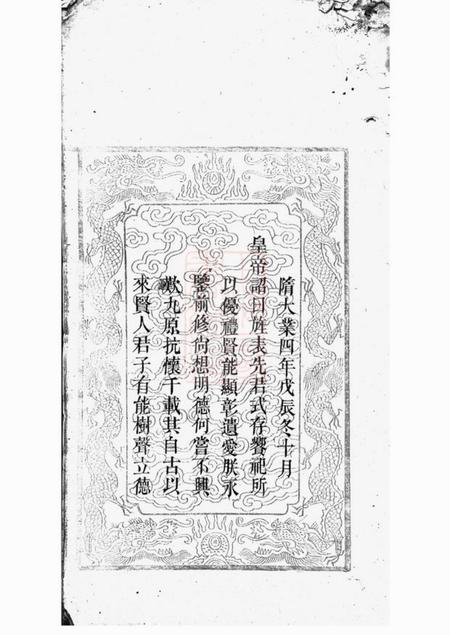 隋大業四年戊辰冬十月
皇帝詔曰旌表先君式存饗祀所
以優禮賢能顯彰遺愛朕永
鑒前修尚想明德何嘗不興
歎九原抗懷千載其自古以
來賢人君子有能樹聲立德